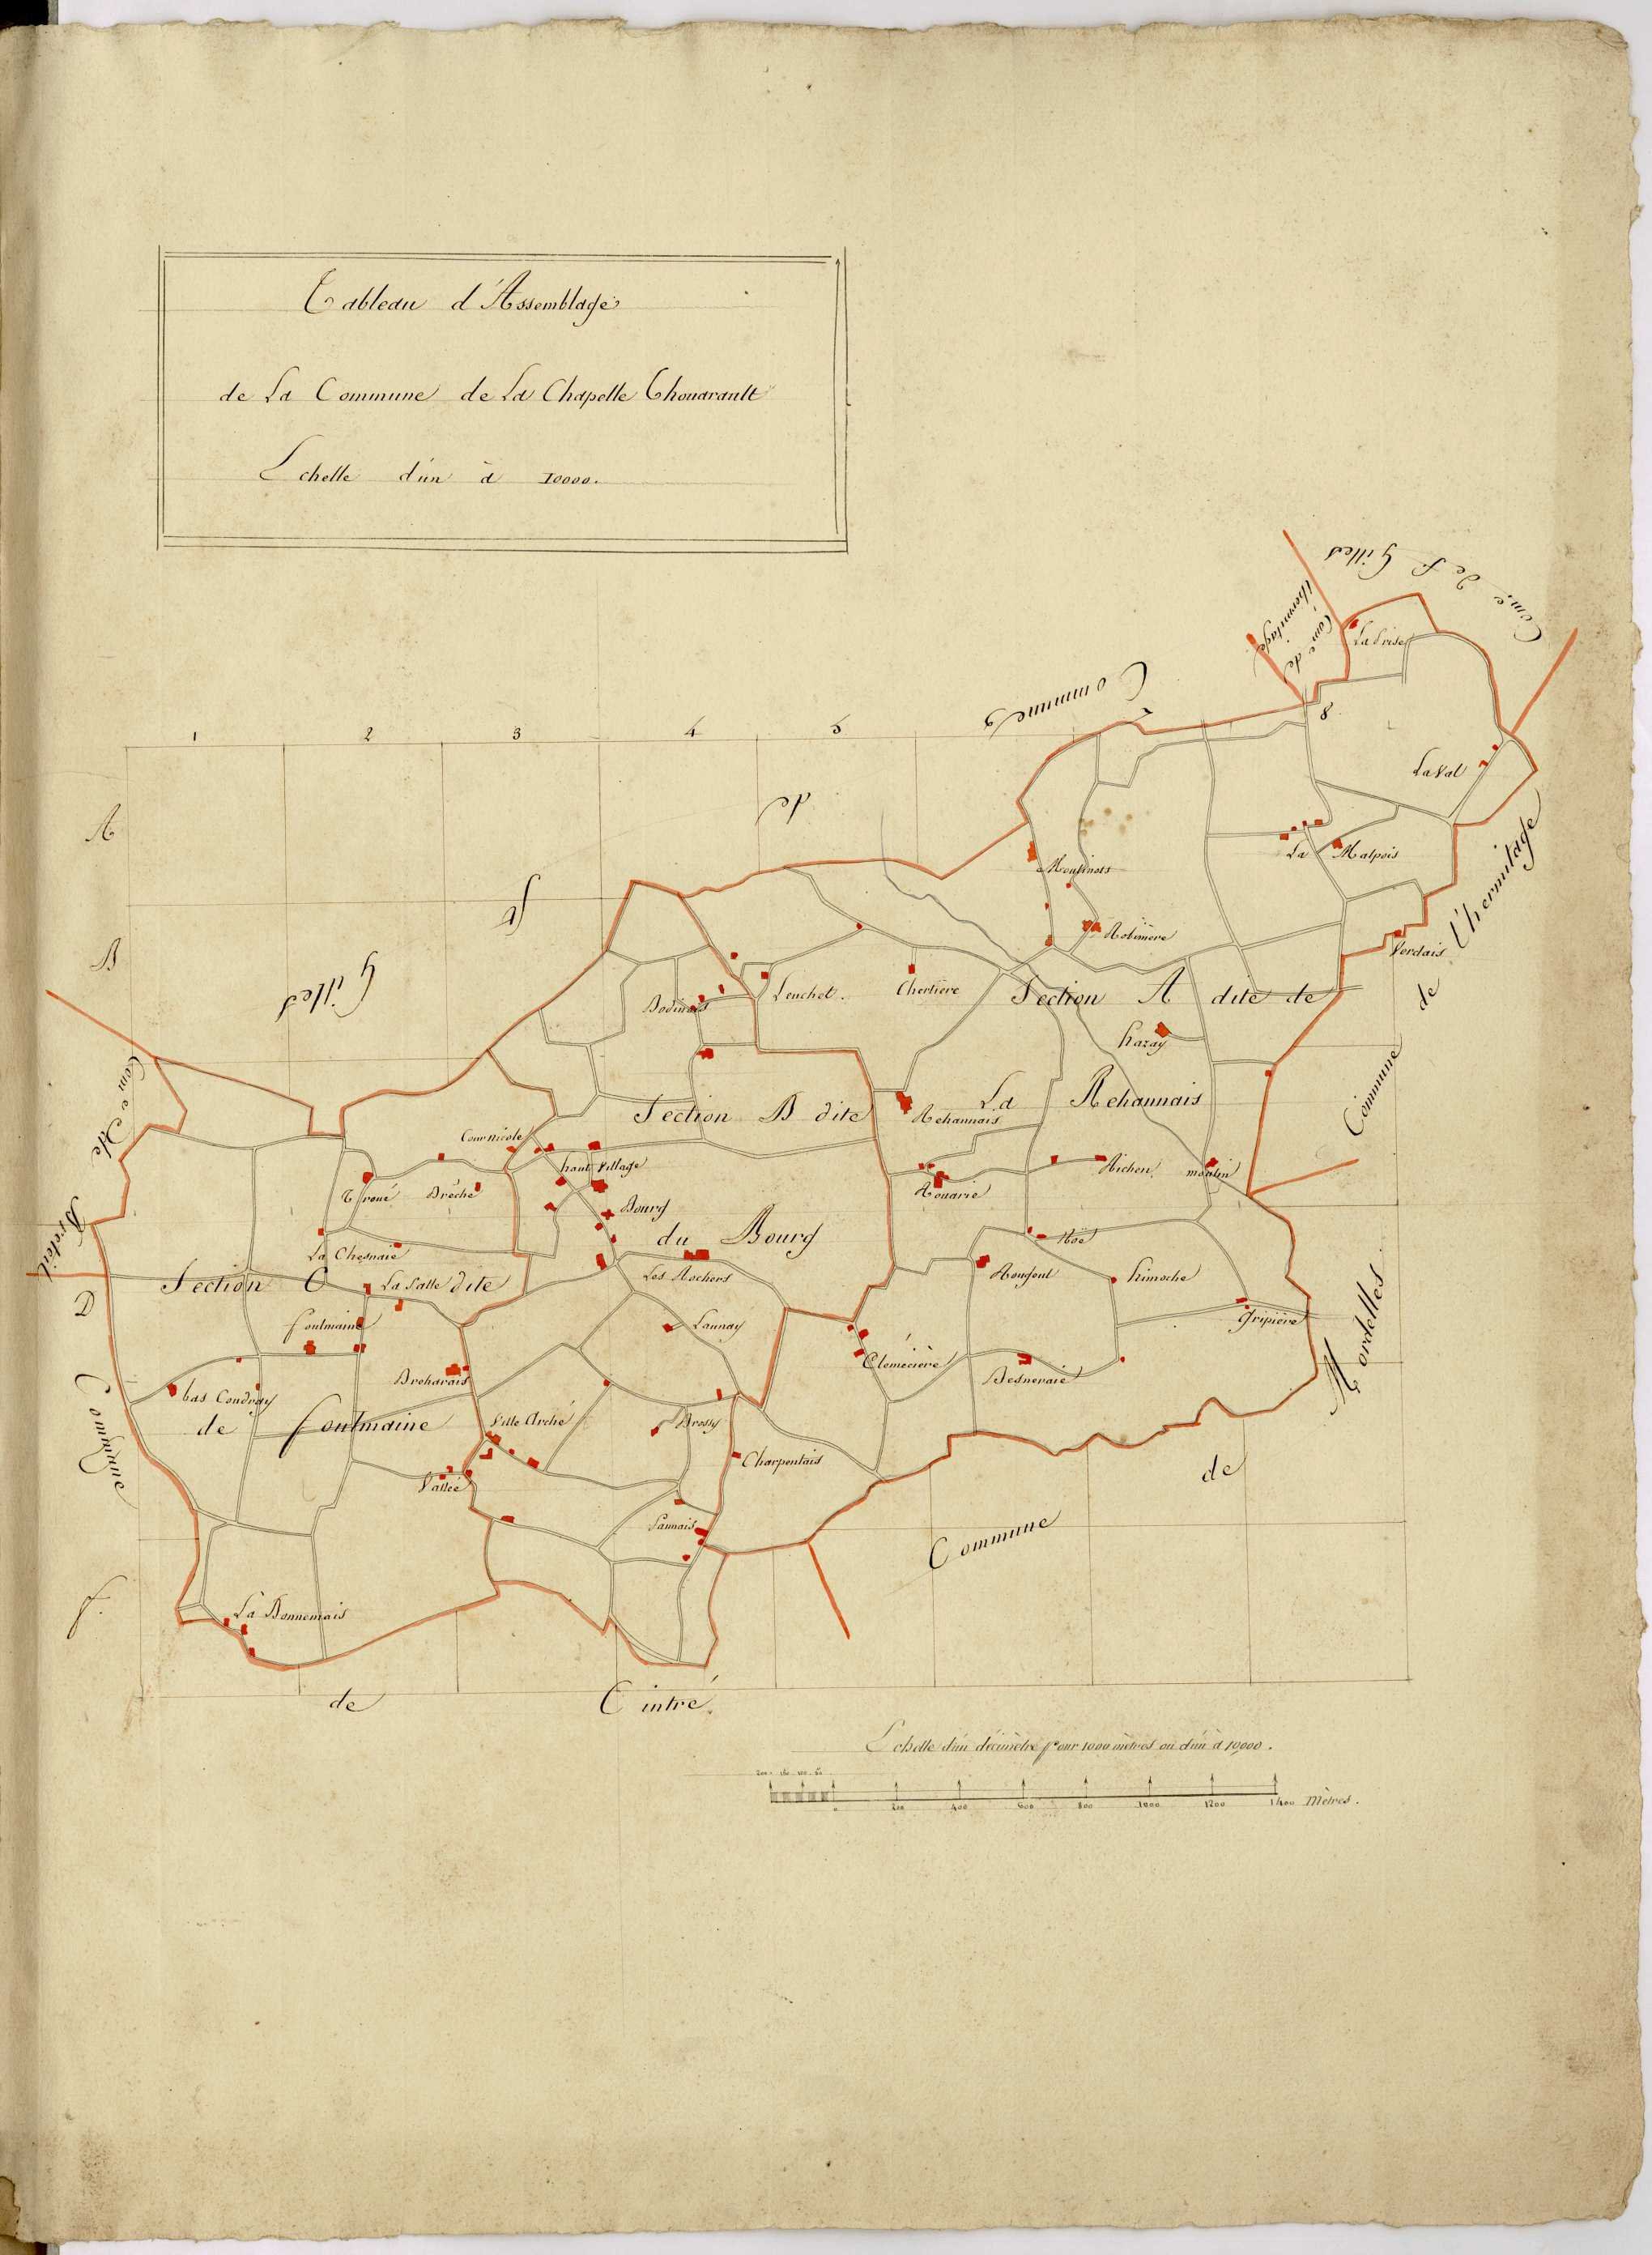 Tableau d'Assemblage
de La Commune de La Chapelle Thouarault
Echelle d'un à 10000.
Com.e de St Gilles
Com.e de l'hermitage
La Prise
Commune
8
1 2 3 4 5 7
La Val
A
de
La Malpois
Moulinets
St
l'hermitage
Robinière
Verdais
B
Gilles
Lenchet.
Chertière
Section A dite de
de
Bodinais
hazay
Commune
Com.e de
La Rehannais
Section B dite
Rehannais
Cour nicole
haut Village
Richen
moulin
Troué
Brêche
Rouarie
Breteil
Bourg
du Bourg
Noë
La Chesnaie
Section C
La Salle
dite
Les Rochers
Ronfont
himoche
D
foulmaine
Launay
Gripière
Mordelles.
Clemecière
Besneraie
Breharais
bas Coudray
Commune
de foulmaine
Ville Arché
Brossy
Charpentais
Vallée
de
Saunais
Commune
f.
La Bonnemais
de Cintré.
Echelle d'un décimètre pour 1000 mètres ou d'un à 10,000.
200 150 100 50
0 200 400 600 800 1000 1200 1400 Mètres.